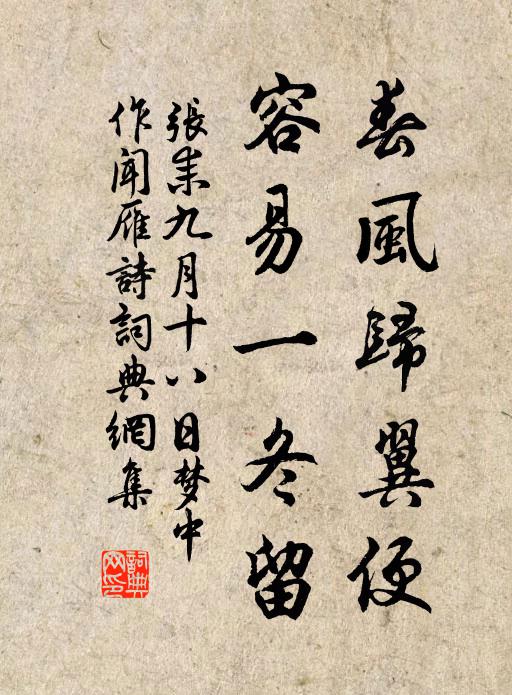 春風歸翼便
容易一冬留
張耒九月十八日梦中
作聞雁詩詞典網集
詞典
网印